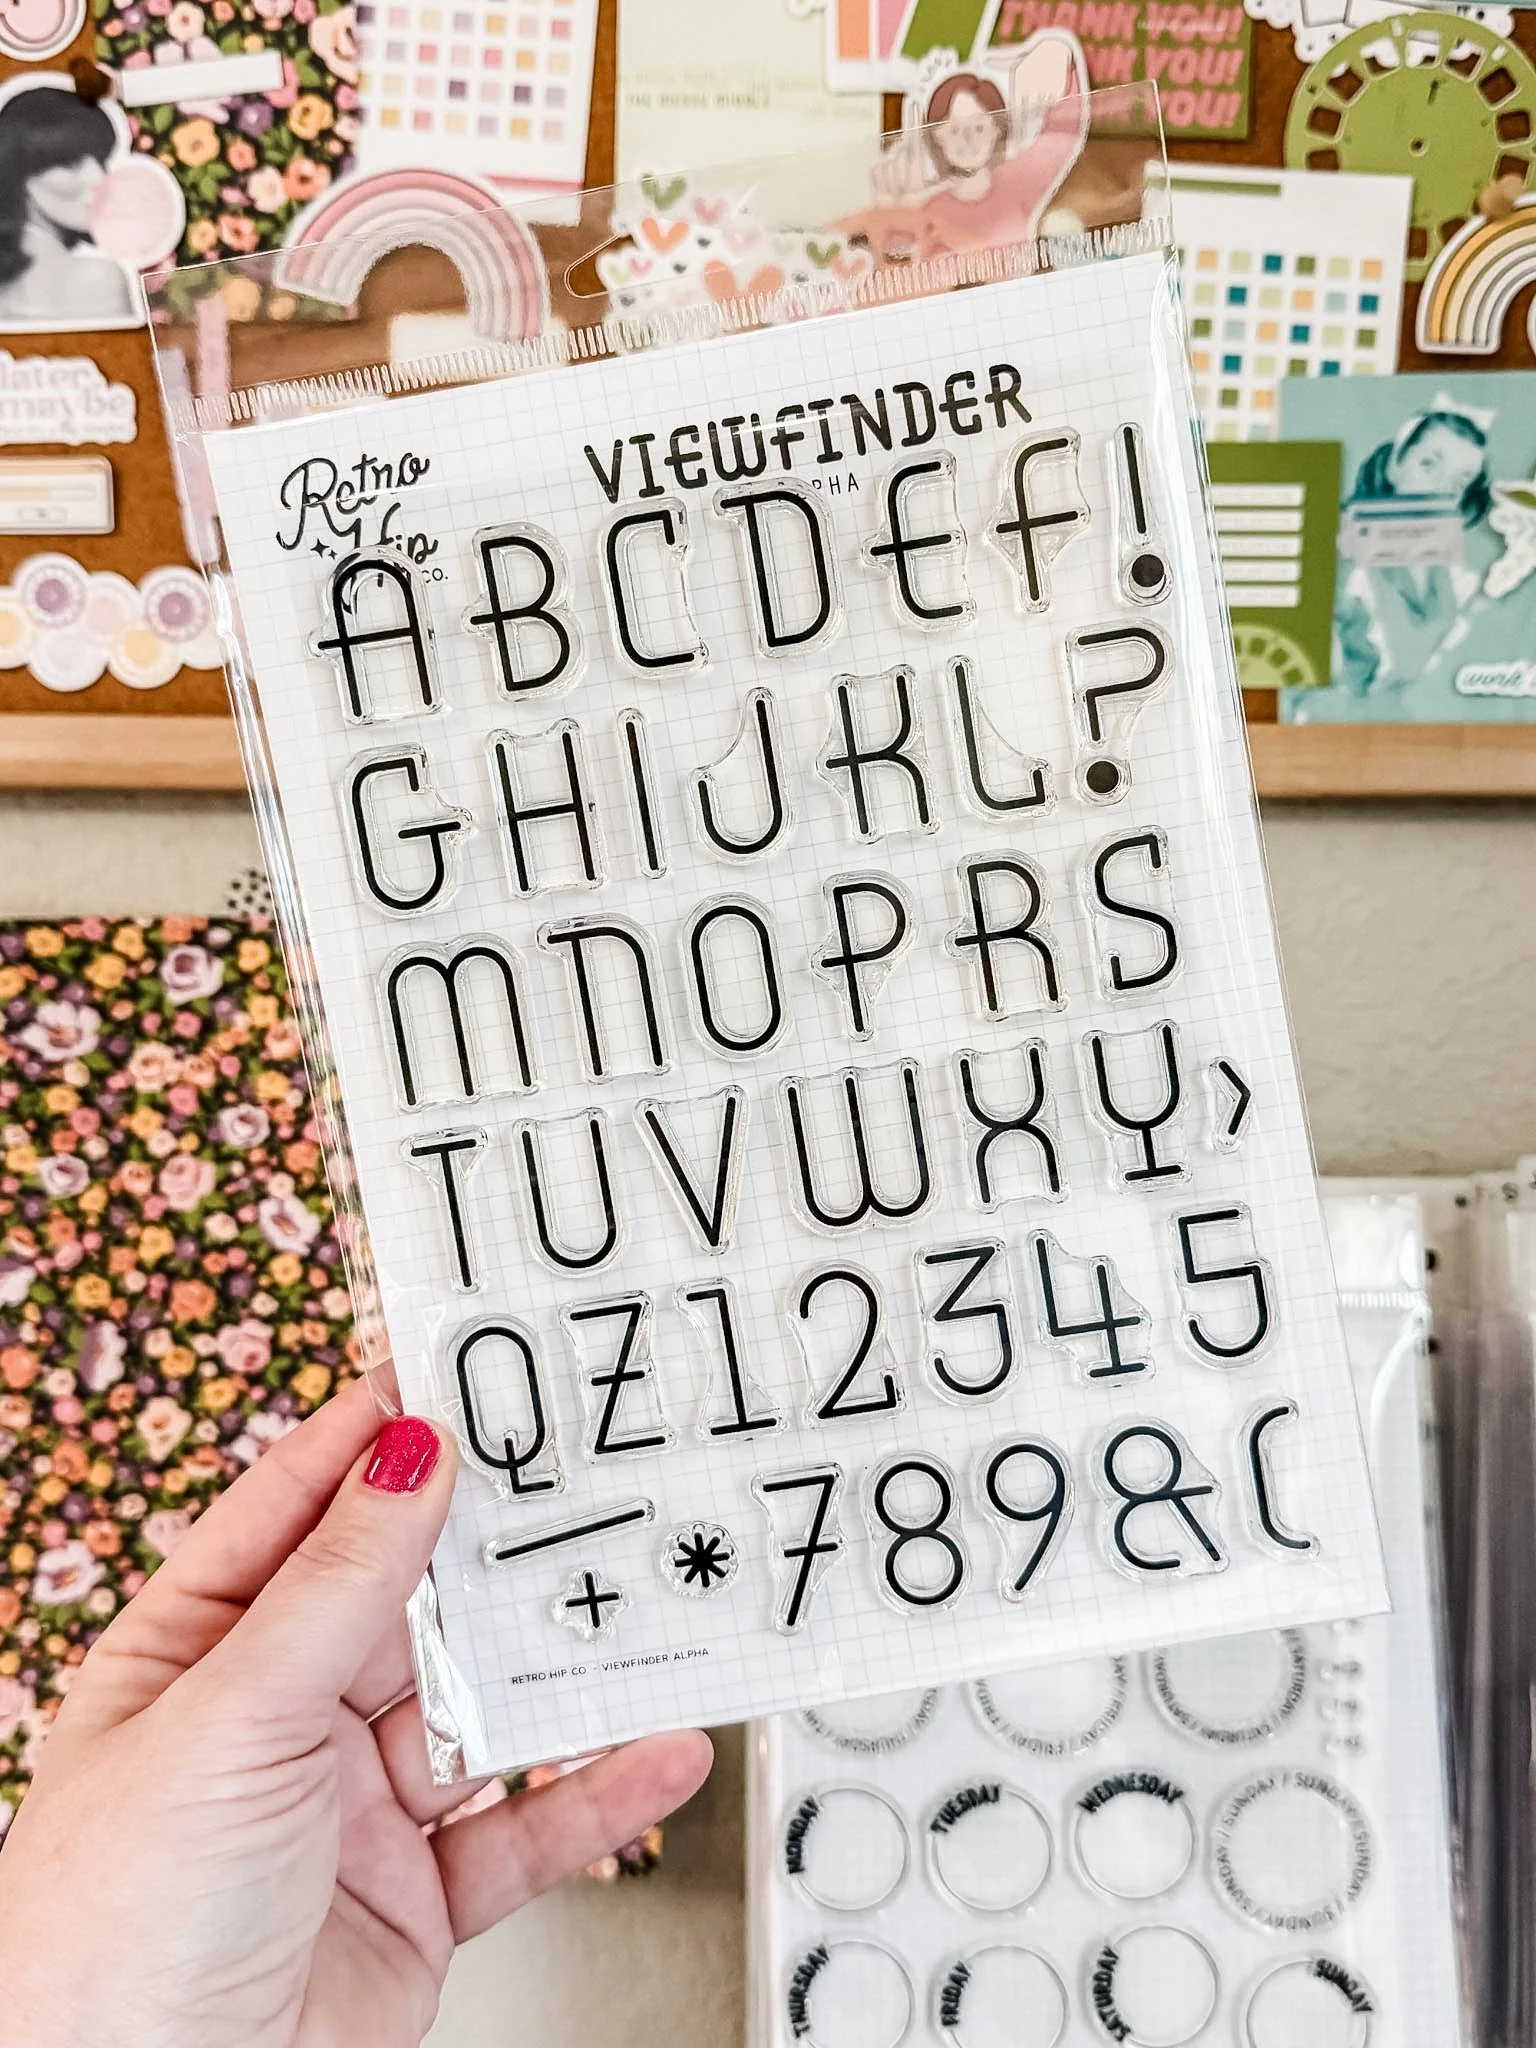 THANK YOU!
THANK YOU!
later,
maybe
work
Retro
Hip
CO.
VIEWFINDER
ALPHA
A B C D E F !
G H I J K L ?
M N O P R S
T U V W X Y >
Q Z 1 2 3 4 5
— + * 7 8 9 & (
RETRO HIP CO - VIEWFINDER ALPHA
MONDAY
TUESDAY
WEDNESDAY
SUNDAY / SUNDAY / SUNDAY / SUNDAY / SUNDAY
THURSDAY
FRIDAY
SATURDAY
SUNDAY